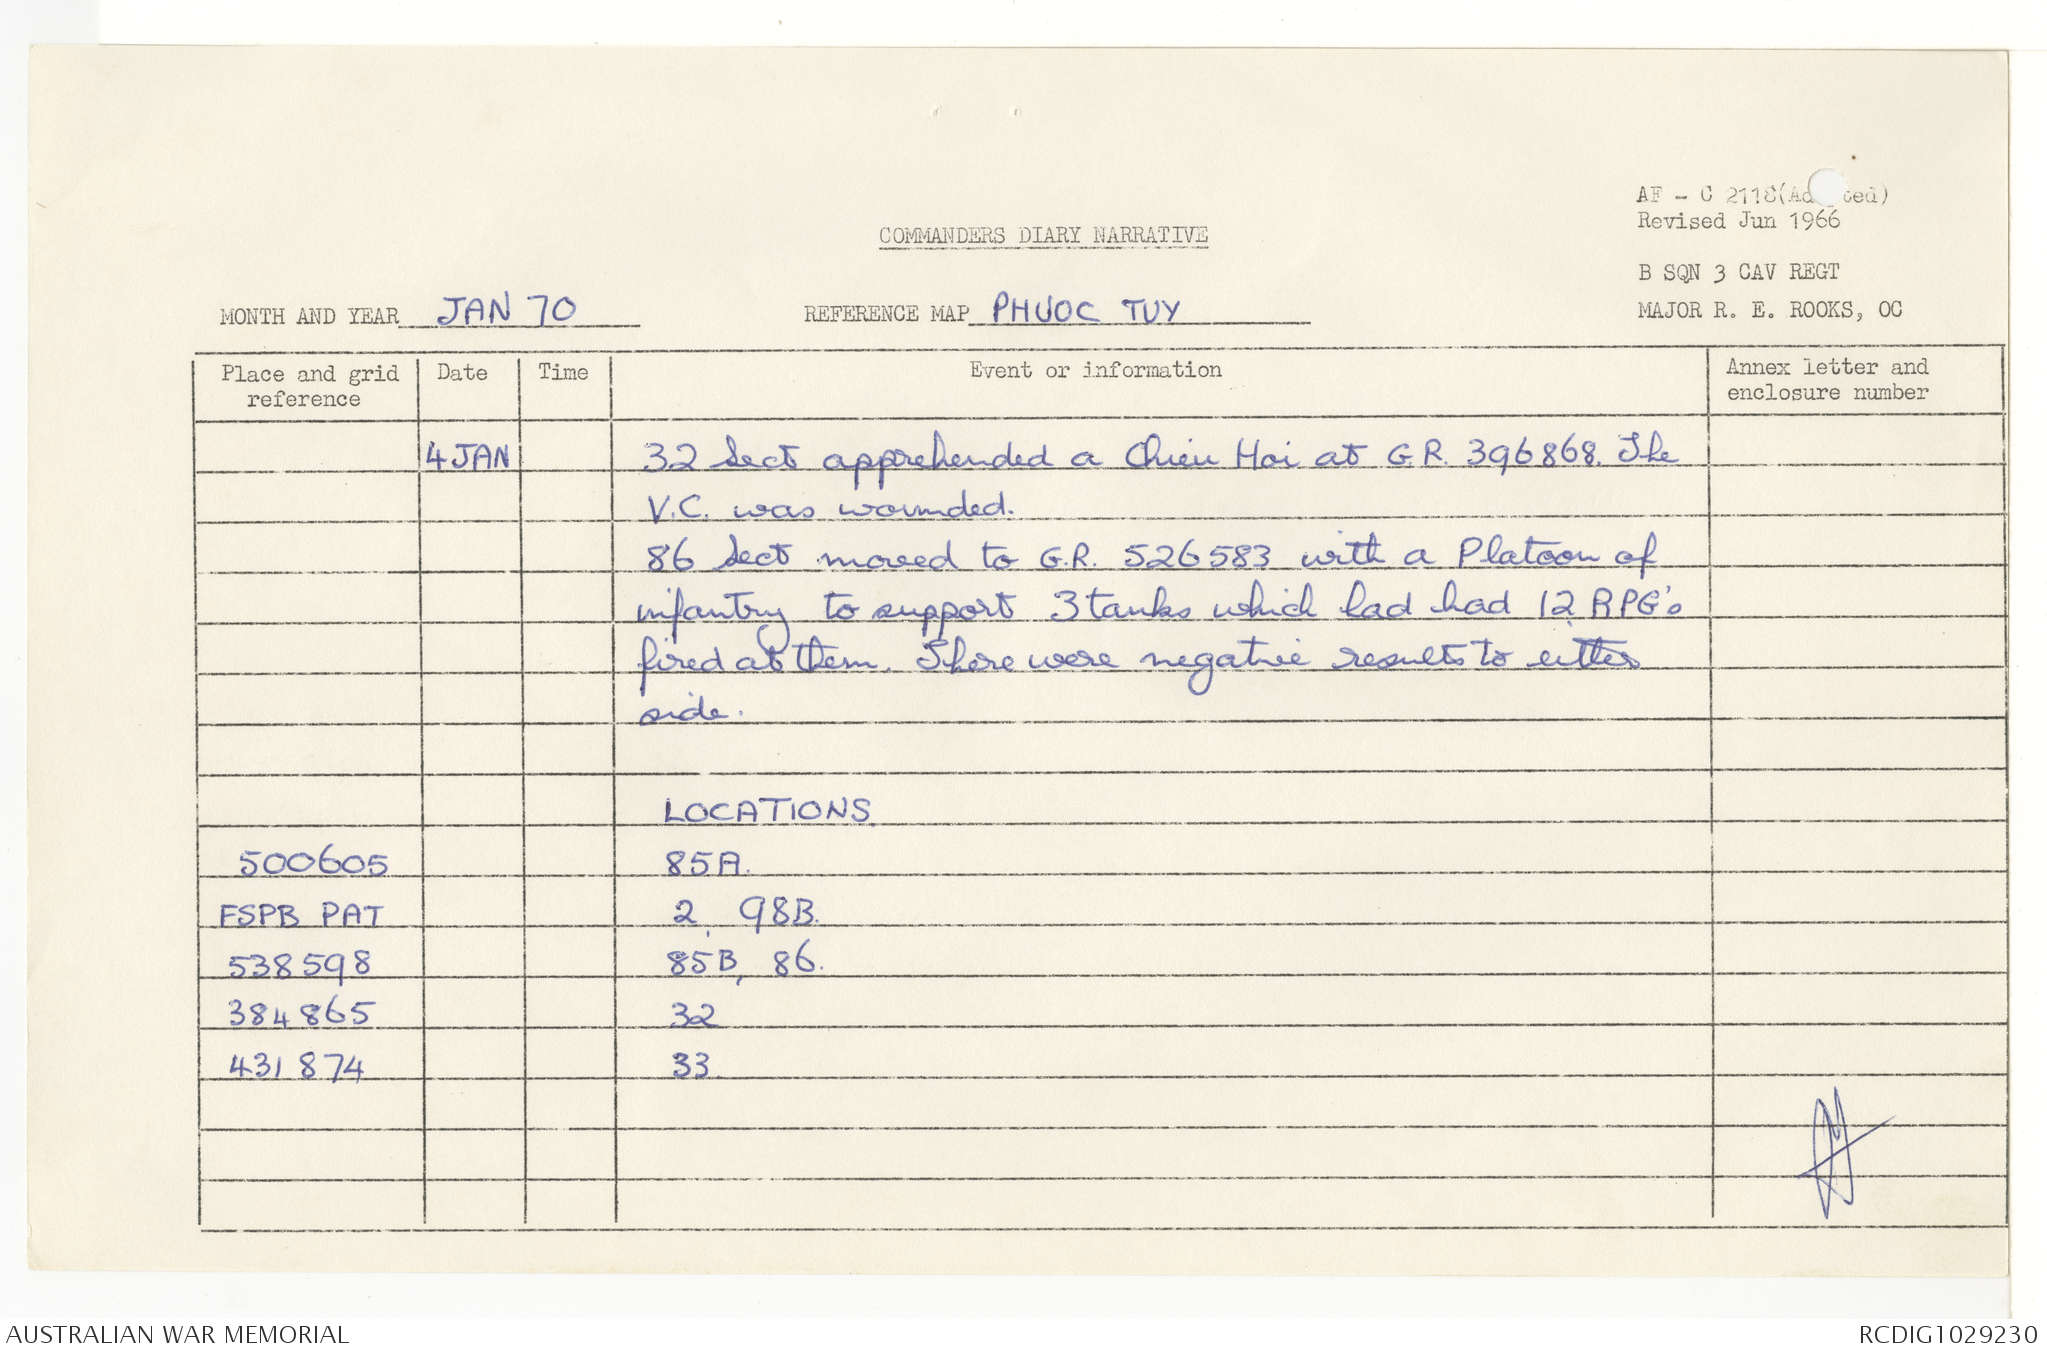 AF - C 2118(Ad ted)
Revised Jun 1966
COMMANDERS DIARY NARRATIVE
B SQN 3 CAV REGT
MONTH AND YEAR JAN 70 REFERENCE MAP PHUOC TUY MAJOR R. E. ROOKS, OC
Place and grid reference Date Time Event or information Annex letter and enclosure number
4 JAN 32 Sect apprehended a Chieu Hoi at G.R. 396868. The
V.C. was wounded.
86 Sect moved to G.R. 526583 with a Platoon of
infantry to support 3 tanks which had had 12 RPG's
fired at them. There were negative results to either
side.
LOCATIONS
500605 85A.
FSPB PAT 2, 98B.
538598 85B, 86.
384865 32
431874 33
AUSTRALIAN WAR MEMORIAL RCDIG1029230